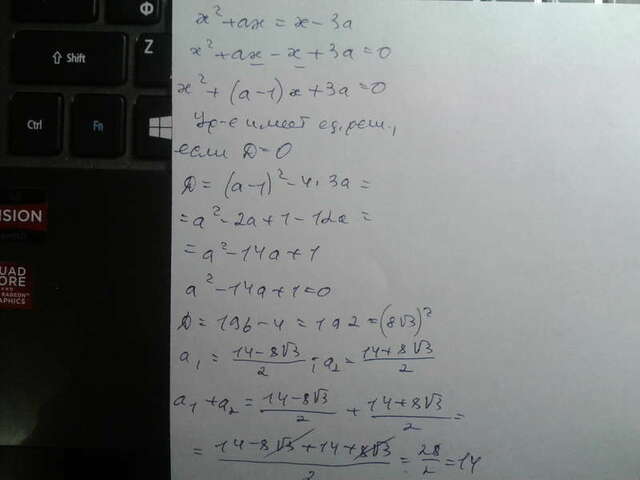 Ф
⇧ Shift
Z
Ctrl
Fn
VISION
QUAD
CORE
RADEON™
GRAPHICS
x² + ax = x - 3a
x² + ax - x + 3a = 0
x² + (a - 1)x + 3a = 0
Ур-е имеет ед. реш.,
если D = 0
D = (a - 1)² - 4 · 3a =
= a² - 2a + 1 - 12a =
= a² - 14a + 1
a² - 14a + 1 = 0
D = 196 - 4 = 192 = (8√3)²
a₁ = (14 - 8√3)/2 ; a₂ = (14 + 8√3)/2
a₁ + a₂ = (14 - 8√3)/2 + (14 + 8√3)/2 =
= (14 - 8√3 + 14 + 8√3)/2 = 28/2 = 14